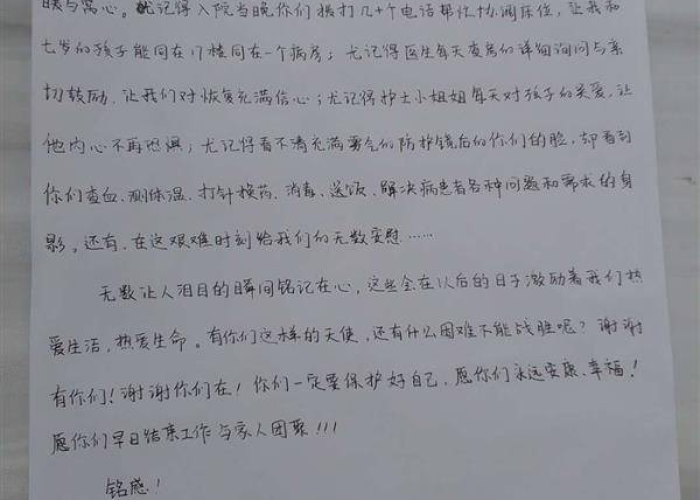 暖与窝心。犹记得入院当晚你们拨打几十个电话帮忙协调床位，让我和
七岁的孩子能同在17楼同在一个病房；尤记得医生每天查房的详细询问与亲
切鼓励，让我们对恢复充满信心；尤记得护士小姐姐每天对孩子的关爱，让
他内心不再恐惧；尤记得看不清充满雾气的防护镜后的你们的脸，却看到
你们查血、测体温、打针换药、消毒、送饭、解决病患者各种问题和需求的身
影。还有，在这艰难时刻给我们的无数安慰……
无数让人泪目的瞬间铭记在心，这些会在以后的日子激励着我们热
爱生活，热爱生命。有你们这样的天使，还有什么困难不能战胜呢？谢谢
有你们！谢谢你们在！你们一定要保护好自己，愿你们永远安康、幸福！
愿你们早日结束工作与家人团聚！！！
铭感！